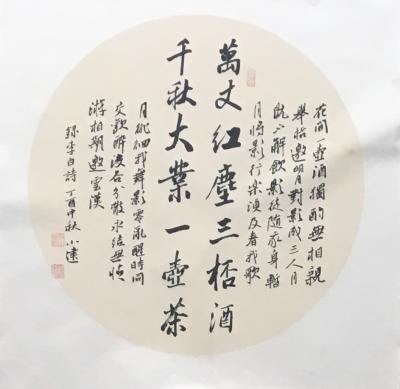 花间一壺酒獨酌無相親
舉杯邀明月對影成三人月
既不解飲影徒随我身暫
月將影行樂須及春我歌
萬丈紅塵三杯酒
千秋大業一壺茶
月徘徊我舞影零亂醒時同
交歡醉後各分散永結無情
游相期邈雲漢
録李白詩丁酉中秋小